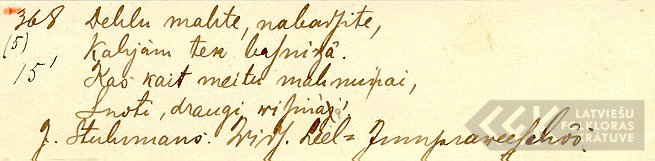 368 Dehlu mahte, nabadsite,
(5) Kahjám tek basnizâ.
15' Kas kait meitu mahmuņai,
Snoti, draugi wisinâs!
J. Stuhrmans. Leel= Jumprawmuischâ.
LATVIEŠU
FOLKLORAS
KRĀTUVE